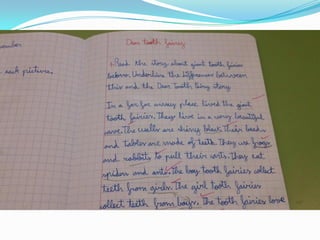 ember
n each picture.
Dear tooth fairy
1. Read the story about giant tooth fairies
below. Underline the differences between
this and the Dear Tooth fairy story
In a far far away place lived the giant
tooth fairies. They live in a very beautiful
cave. The walls are shiney black. Their beds
and tables are made of teeth. They use frogs
and rabbits to pull their carts. They eat
spiders and ants. The boy tooth fairies collect
teeth from girls. The girl tooth fairies
collect teeth from boys. The tooth fairies love